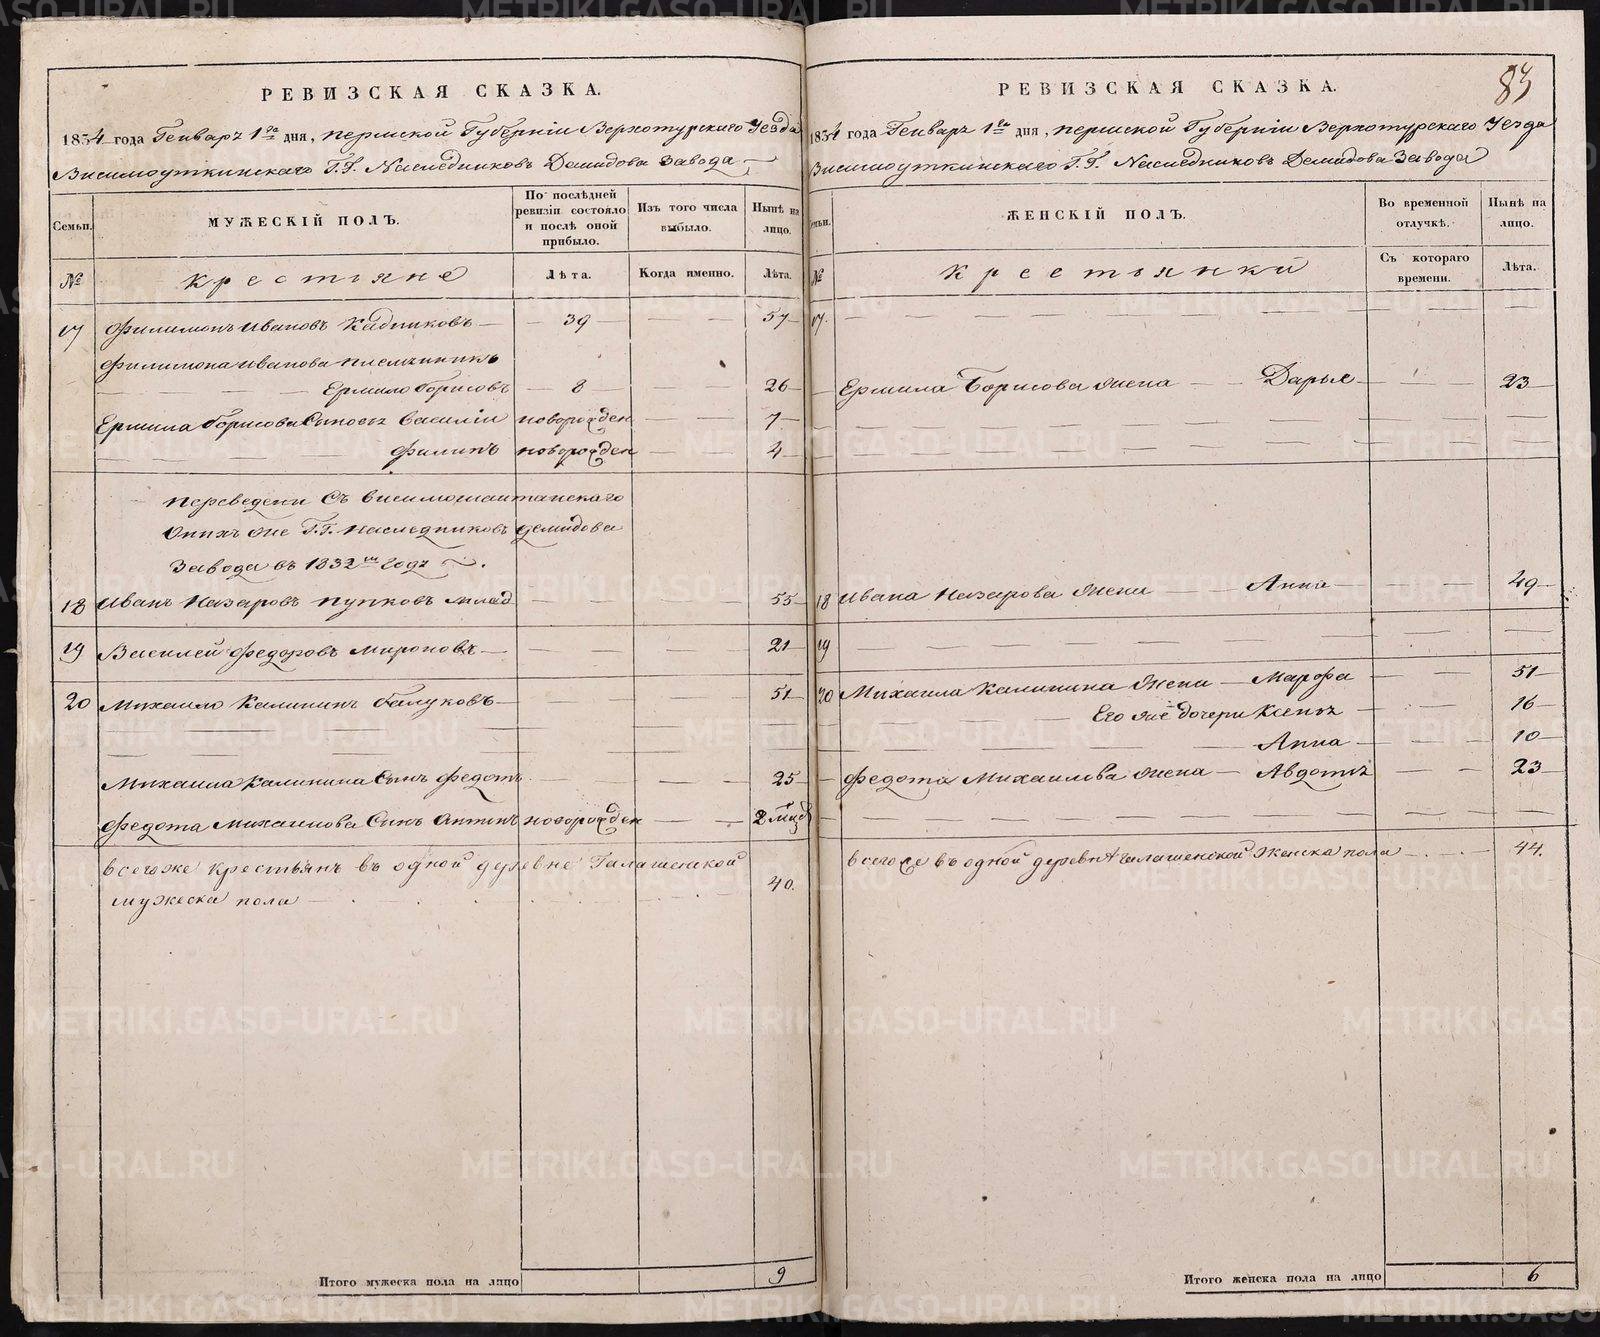 РЕВИЗСКАЯ СКАЗКА.
1834 года Генваря 1го дня, Пермской Губернiи Верхотурскаго Уезда
Висимоуткинскаго Г.Г. Наследниковъ Демидова Завода
Семьи.
МУЖЕСКIЙ ПОЛЪ.
По последней ревизiи состояло и послѣ оной прибыло.
Изъ того числа выбыло.
Нынѣ на лицо.
№
Крестьяне
Лѣта.
Когда именно.
Лѣта.
17 Филимонъ Ивановъ Кадниковъ 39 57
Филимона Иванова племянникъ
Ермило Борисовъ 8 26
Ермила Борисова Сыновья Василiи новорожден 7
Филипъ новорожден 4
Переведени Съ висимошайтанскаго
Онихъ же Г.Г. Наследниковъ Демидова
Завода въ 1832м году
18 Иванъ Назаровъ Пупковъ млад 55
19 Василей Федоровъ Мироновъ 21
20 Михаило Калининъ Балуковъ 51
Михаила Калинина Сынъ Федотъ 25
Федота Михаилова Сынъ Антипъ новорожден 2 мцъ
всегоже крестьянъ въ одной деревне Галашенской
мужеска пола 40.
Итого мужеска пола на лицо 9
83
РЕВИЗСКАЯ СКАЗКА.
1834 года Генваря 1го дня, Пермской Губернiи Верхотурскаго Уезда
Висимоуткинскаго Г.Г. Наследниковъ Демидова Завода
Семьи.
ЖЕНСКIЙ ПОЛЪ.
Во временной отлучкѣ.
Нынѣ на лицо.
№
Крестьянки
Съ котораго времени.
Лѣта.
17.
Ермила Борисова Жена Дарья 23
18 Ивана Назарова Жена Анна 49
19
20 Михаила Калинина Жена Марфа 51
Его же дочери Ксенья 16
Анна 10
Федота Михаилова Жена Авдотья 23
всегоже въ одной деревнѣ Галашенской Женска пола 44.
Итого женска пола на лицо 6
METRIKI.GASO-URAL.RU